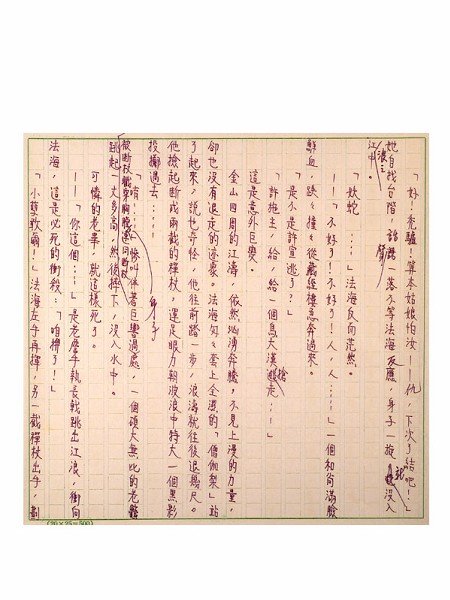 「好！禿驢！算本姑娘怕汝——仇，下次了結吧！」
她自找台階，話聲一落不等法海反應，身子一旋，沒入滾滾
江中。
「妖蛇……」法海反向茫然。
——不好了！不好了！人，人……」一個和尚滿臉
鮮血，跌跌撞撞從藏經樓急奔過來。
「是不是許宣逃了？」
「許施主，給，給一個烏大漢搶走……」
這是意外巨變。
金山四周的江濤，依然汹湧奔騰，不見上漫的力量，
卻也沒有退走的迹象。法海匆匆套上金漆的「僧伽梨」站
了起來，說也奇怪，他往前踏一步，浪濤就往後退幾尺。
他撿起斷成兩截的禪杖，運足眼力朝波浪中特大一個黑影
投擲過去……
「唷！……」慘叫伴著巨響過處，一個碩大無比的老龜
被斷杖截穿胸膛連同戰杖
跳起一丈多高，然後摔下，沒入水中。
可憐的老龜，就這樣死了。
——「你這個……」是老摩手執長戟跳出江浪，衝向
法海，這是必死的衝殺：「咱拚了！」
「小孽敢爾！」法海左手再揮，另一截禪杖出手，
(20×25=500)